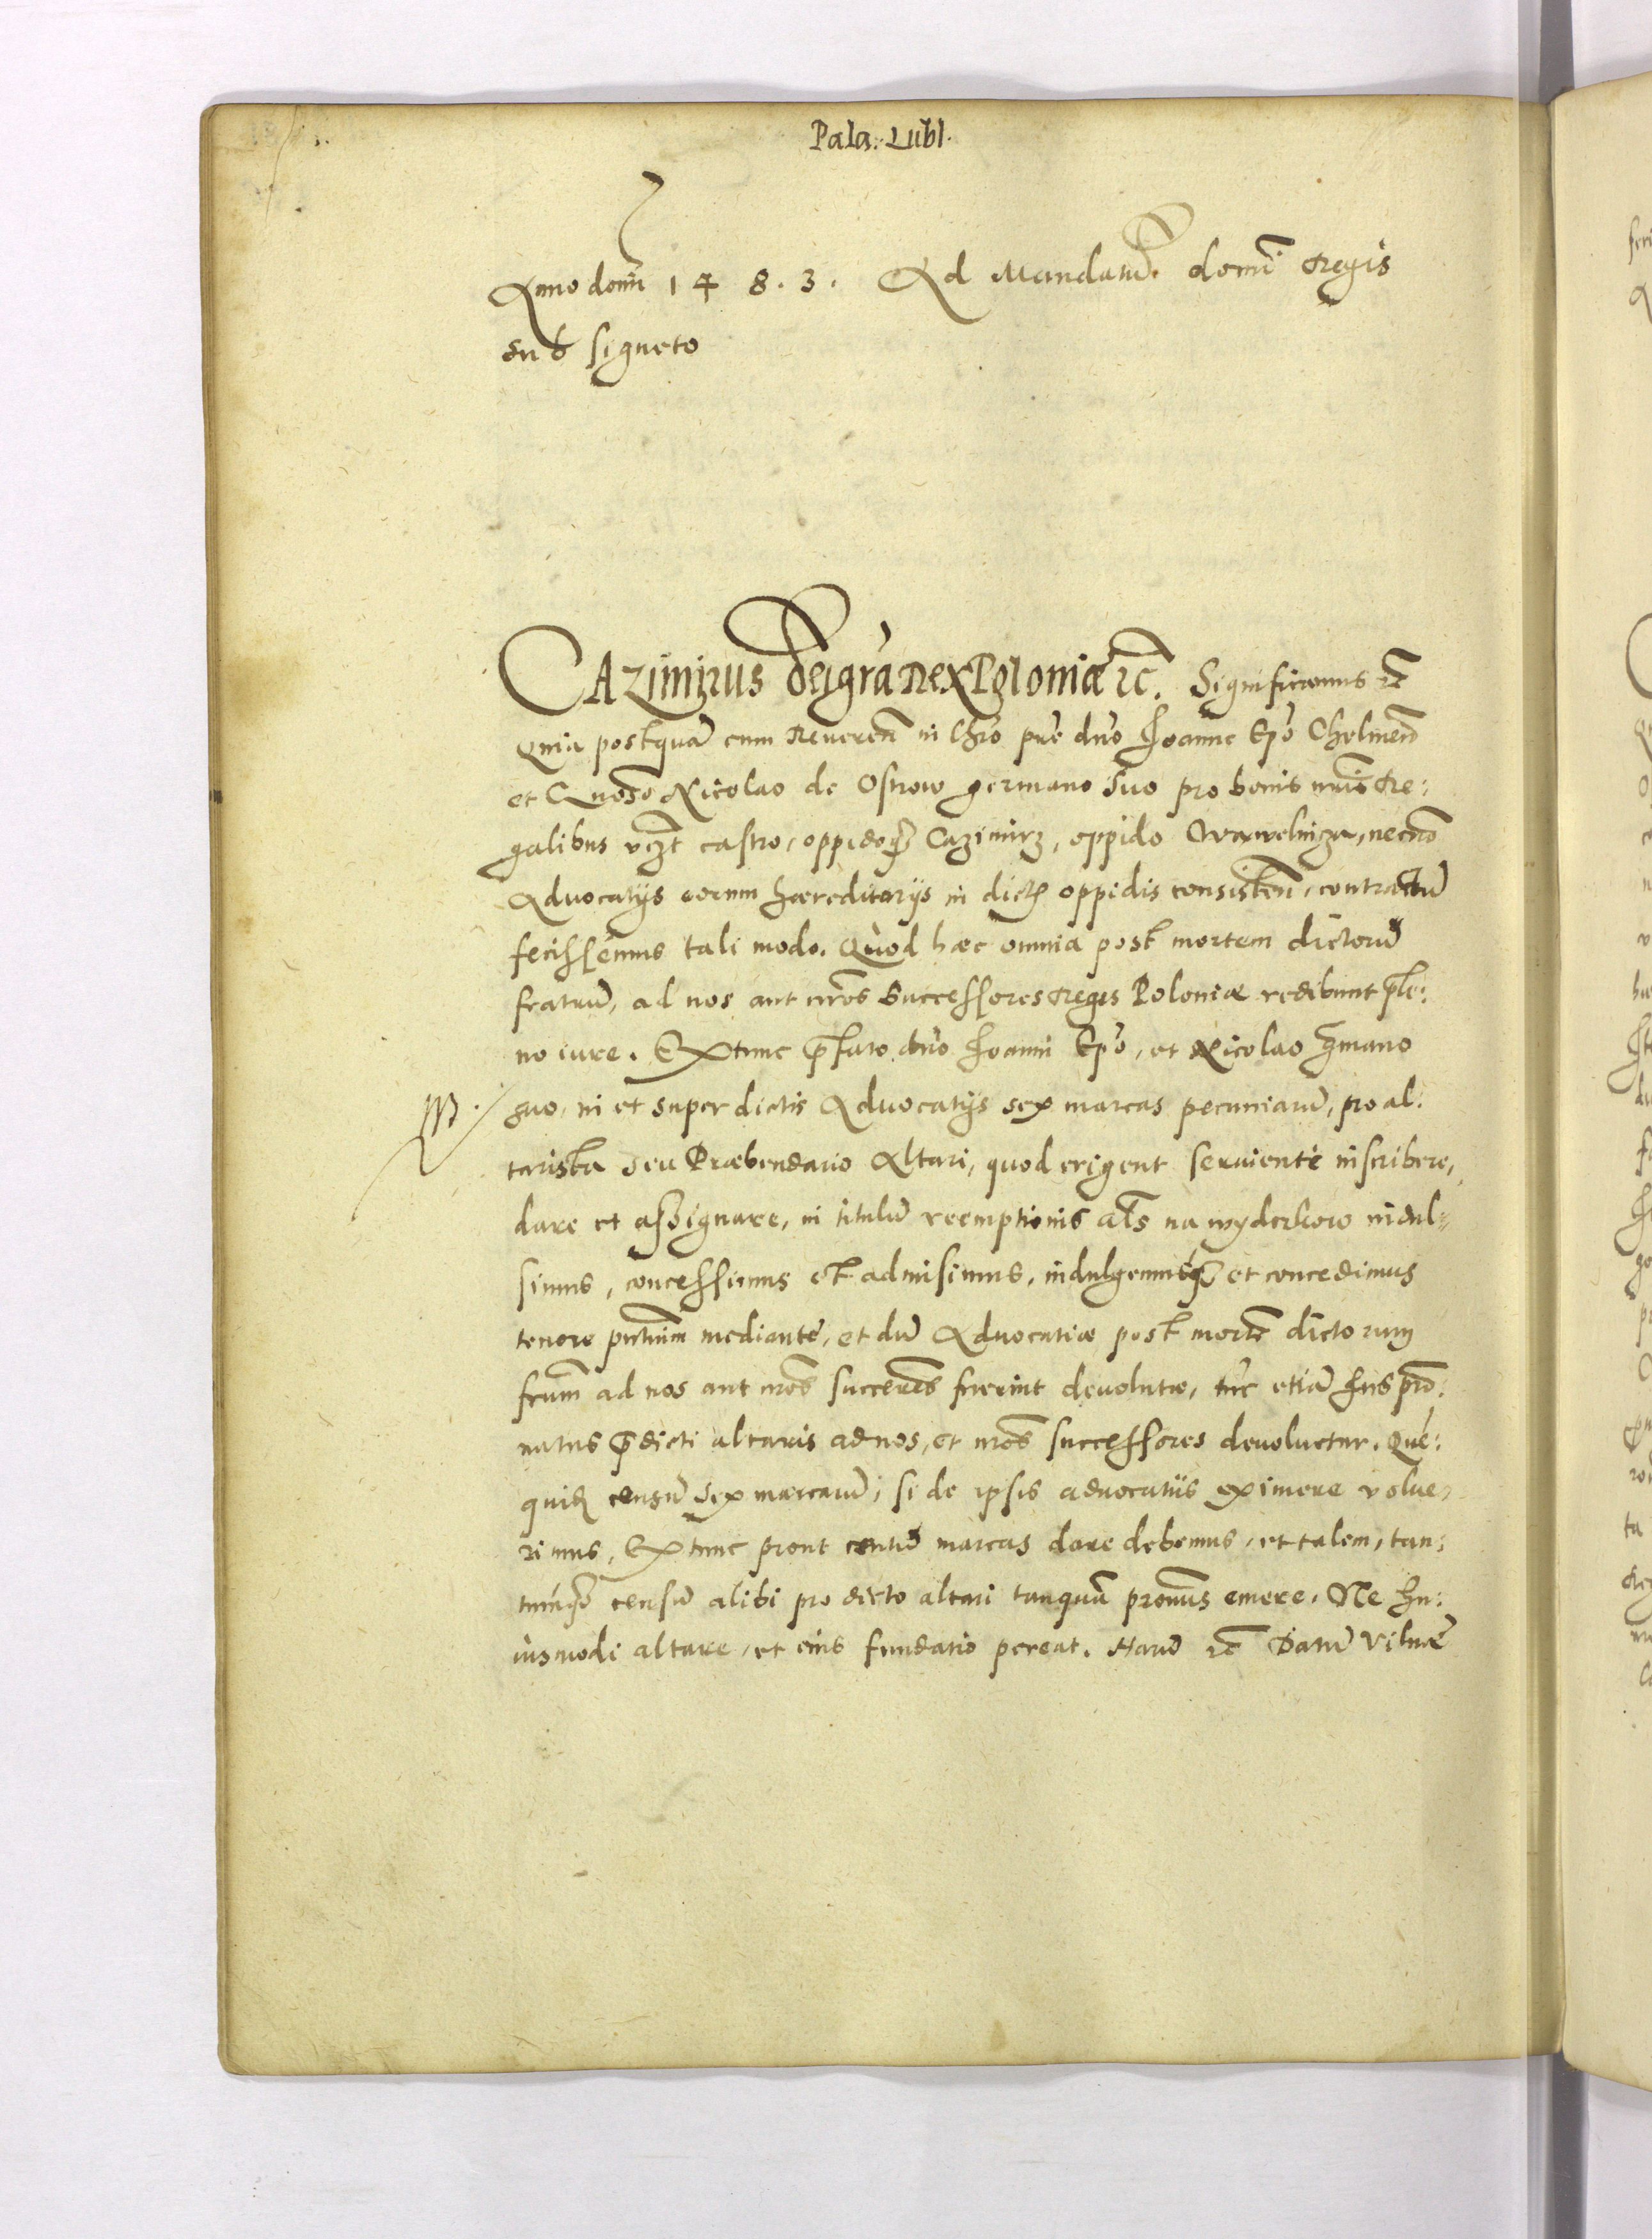 Pala. Lubl.
Anno domi 1 4 8. 3. Ad Mandatū domī Regis
sub signeto
CAZimirus Dei gra Rex Poloniæ ꝛc. Significamus ꝛc
Quia postquā cum Reueren in Chro pre dno Joanne Epo Chelmen
et Gnoso Nicolao de Ostrow germano suo pro bonis nris Re:
galibus vczt castro, oppidoq Cazimirz, oppido Wawelnicza, necno
Aduocatijs eorum hæreditarijs in dictis oppidis consisten, contractū
fecissemus tali modo. Quod hæc omnia post mortem dictorū
fratrum, ad nos aut nros Successores Reges Poloniæ redibunt ple:
no iure. Ex tunc pfato dno Joanni Epo, et Nicolao Gmano
suo, in et super dictis Aduocatijs sex marcas pecuniarū, pro al:
tarista seu Præbendario Altari, quod erigent seruiente inscribere,
dare et assignare, in titulū reemptionis als na wyderkow indul=
simus, concessimus et admisimus, indulgemusq et concedimus
tenore pntium mediante, et dū Aduocatiæ post morte dictorum
frum ad nos aut nros succeres fuerint deuolutæ, tūc etiā Jus pro:
natus pdicti altaris ad nos, et nros successores deuoluetur. Que:
quid censū sex marcarū, si de ipsis aduocatiis eximere volue=
rimus, Ex tunc prout centū marcas dare debemus, et talem, tan:
tumq censū alibi pro dicto altari tanquā pronus emere. Ne hu:
iusmodi altare, et eius fundatio pereat. Harū ꝛc Datū Vilnæ